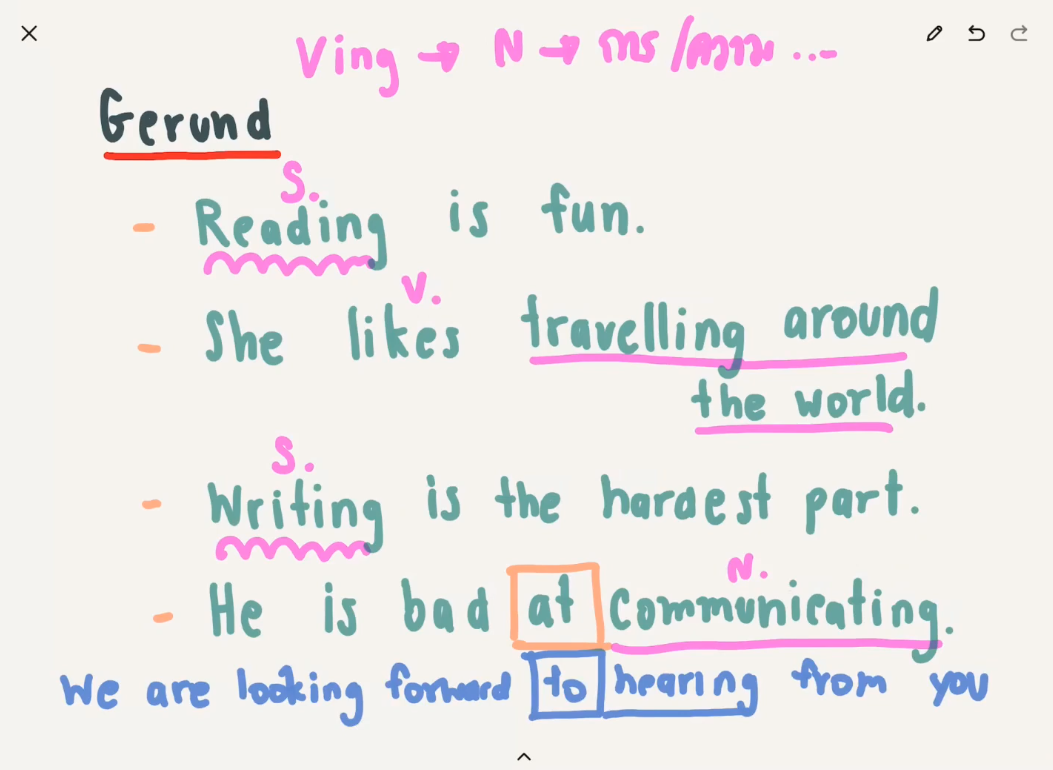 Ving → N → การ/ความ ...
Gerund
S.
- Reading is fun.
V.
- She likes travelling around
the world.
S.
- Writing is the hardest part.
N.
- He is bad at communicating.
We are looking forward to hearing from you